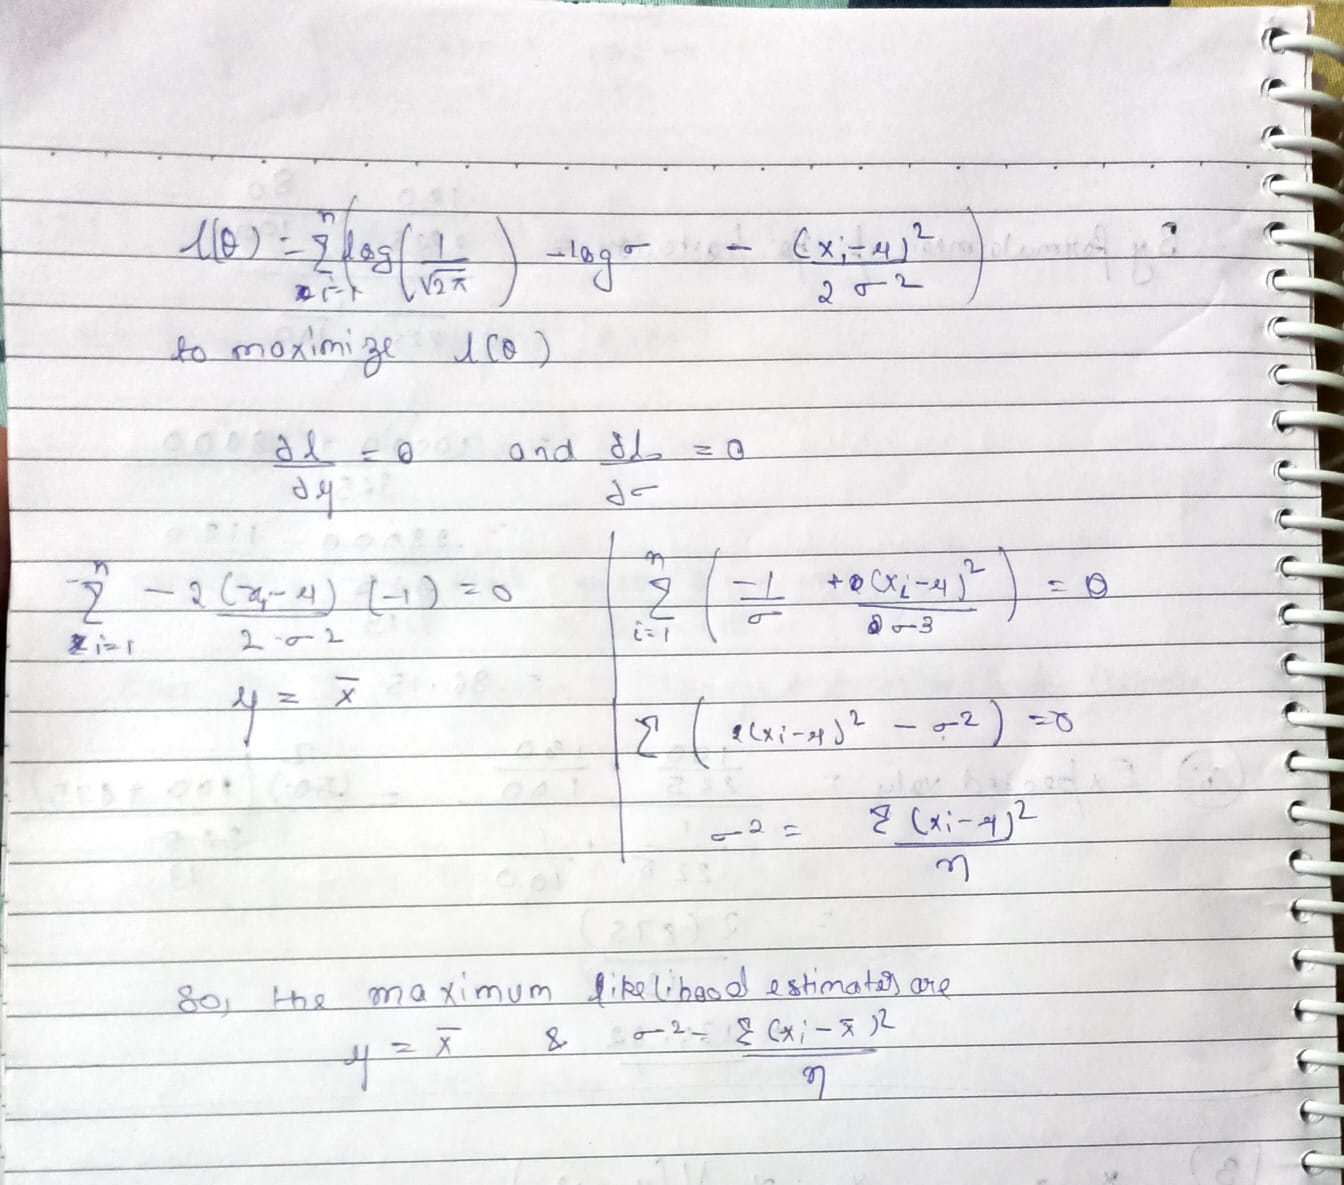 l(θ) = Σ_{i=1}^{n} ( log( 1/√2π ) - log σ - (x_i - μ)²/2σ² )
to maximize l(θ)
∂l/∂μ = 0 and ∂l/∂σ = 0
Σ_{i=1}^{n} - 2(x_i - μ)(-1)/2σ² = 0
μ = x̄
Σ_{i=1}^{n} ( -1/σ + 2(x_i - μ)²/2σ³ ) = 0
Σ ( (x_i - μ)² - σ² ) = 0
σ² = Σ(x_i - μ)²/n
So, the maximum likelihood estimates are
μ = x̄ & σ² = Σ(x_i - x̄)²/n